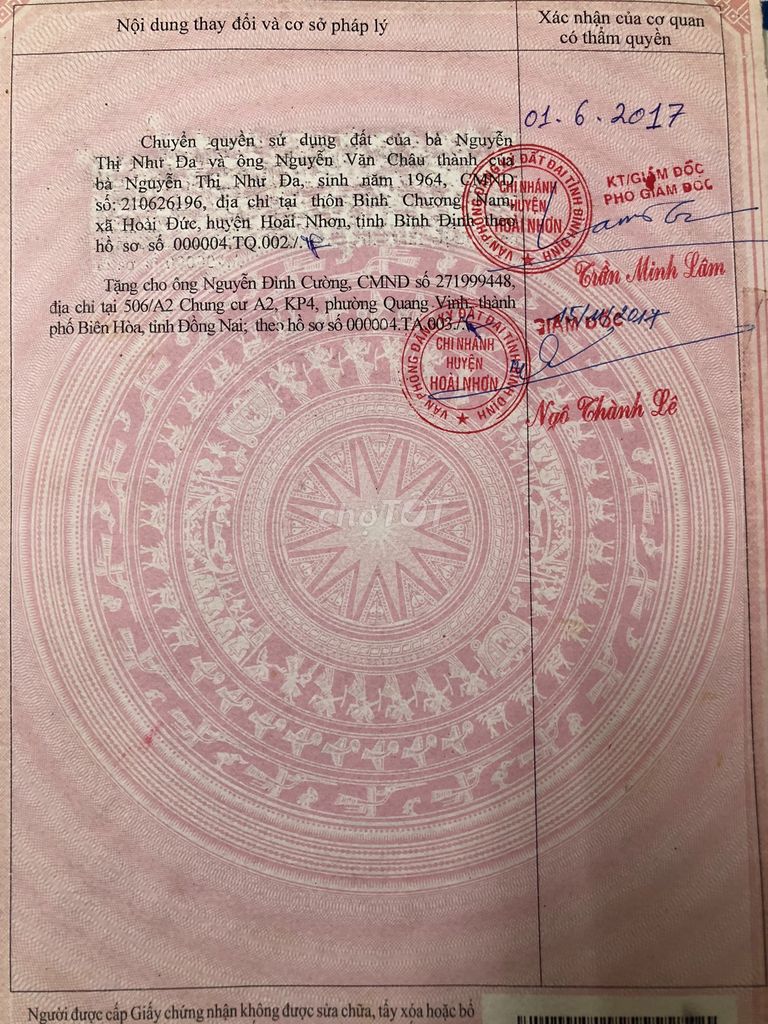 Nội dung thay đổi và cơ sở pháp lý
Xác nhận của cơ quan
có thẩm quyền
Chuyển quyền sử dụng đất của bà Nguyễn
Thị Như Đa và ông Nguyễn Văn Châu thành của
bà Nguyễn Thị Như Đa, sinh năm 1964, CMND
số: 210626196, địa chỉ tại thôn Bình Chương Nam,
xã Hoài Đức, huyện Hoài Nhơn, tỉnh Bình Định theo
hồ sơ số 000004.TQ.002./.
01.6.2017
VĂN PHÒNG ĐĂNG KÝ ĐẤT ĐAI TỈNH BÌNH ĐỊNH
CHI NHÁNH
HUYỆN
HOÀI NHƠN
KT/GIÁM ĐỐC
PHÓ GIÁM ĐỐC
Trần Minh Lâm
Tặng cho ông Nguyễn Đình Cường, CMND số 271999448,
địa chỉ tại 506/A2 Chung cư A2, KP4, phường Quang Vinh, thành
phố Biên Hòa, tỉnh Đồng Nai; theo hồ sơ số 000004.TA.003./.
15/11/2017
GIÁM ĐỐC
VĂN PHÒNG ĐĂNG KÝ ĐẤT ĐAI TỈNH BÌNH ĐỊNH
CHI NHÁNH
HUYỆN
HOÀI NHƠN
Ngô Thành Lê
chợTỐT
Người được cấp Giấy chứng nhận không được sửa chữa, tẩy xóa hoặc bổ